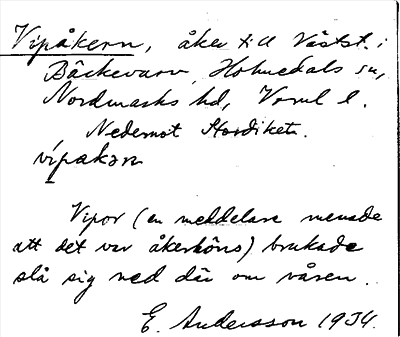 Vipåkern, åker till Västst. i
Bäckevarv, Holmedals sn,
Nordmarks hd, Vrml l.
Nedemot Hordiket.
vípakərn
Vipor (en meddelare menade
att det var åkerhöns) brukade
slå sig ned där om våren.
E. Andersson 1934.